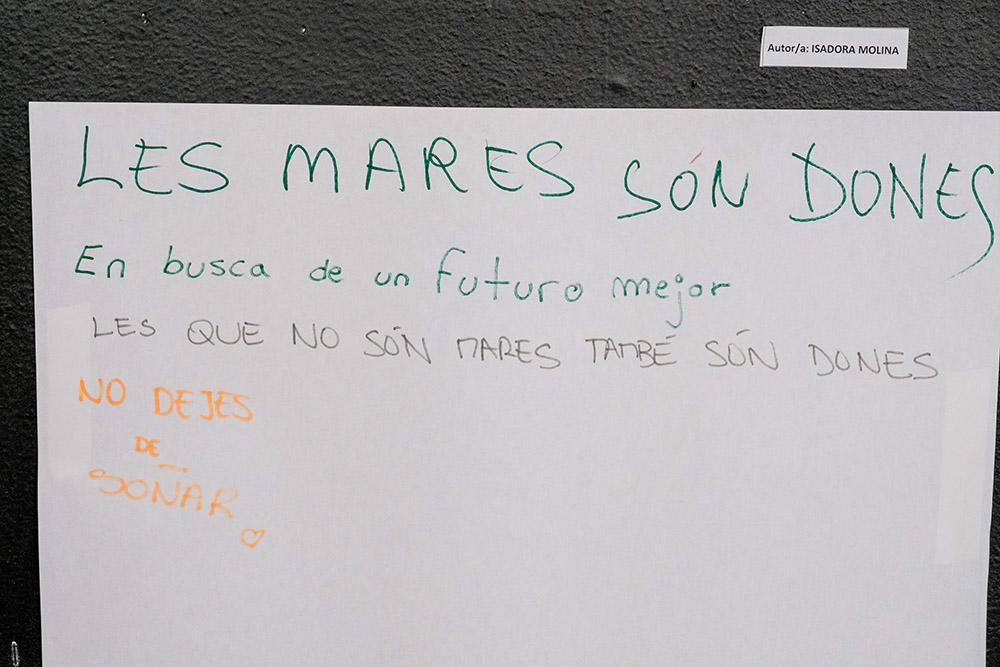 Autor/a: ISADORA MOLINA
LES MARES SÓN DONES
En busca de un futuro mejor
LES QUE NO SÓN MARES TAMBÉ SÓN DONES
NO DEJES
DE
SOÑAR ♡